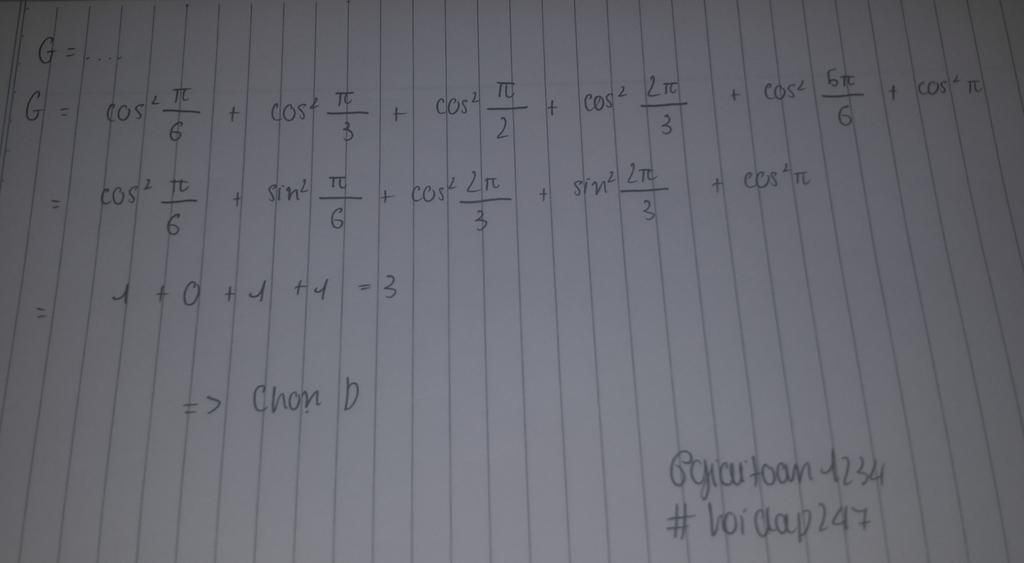 G = ....
G = cos² π/6 + cos² π/3 + cos² π/2 + cos² 2π/3 + cos² 5π/6 + cos² π
= cos² π/6 + sin² π/6 + cos² 2π/3 + sin² 2π/3 + cos² π
= 1 + 0 + 1 + 1 = 3
=> Chọn D
@giaitoan1234
# hoidap247